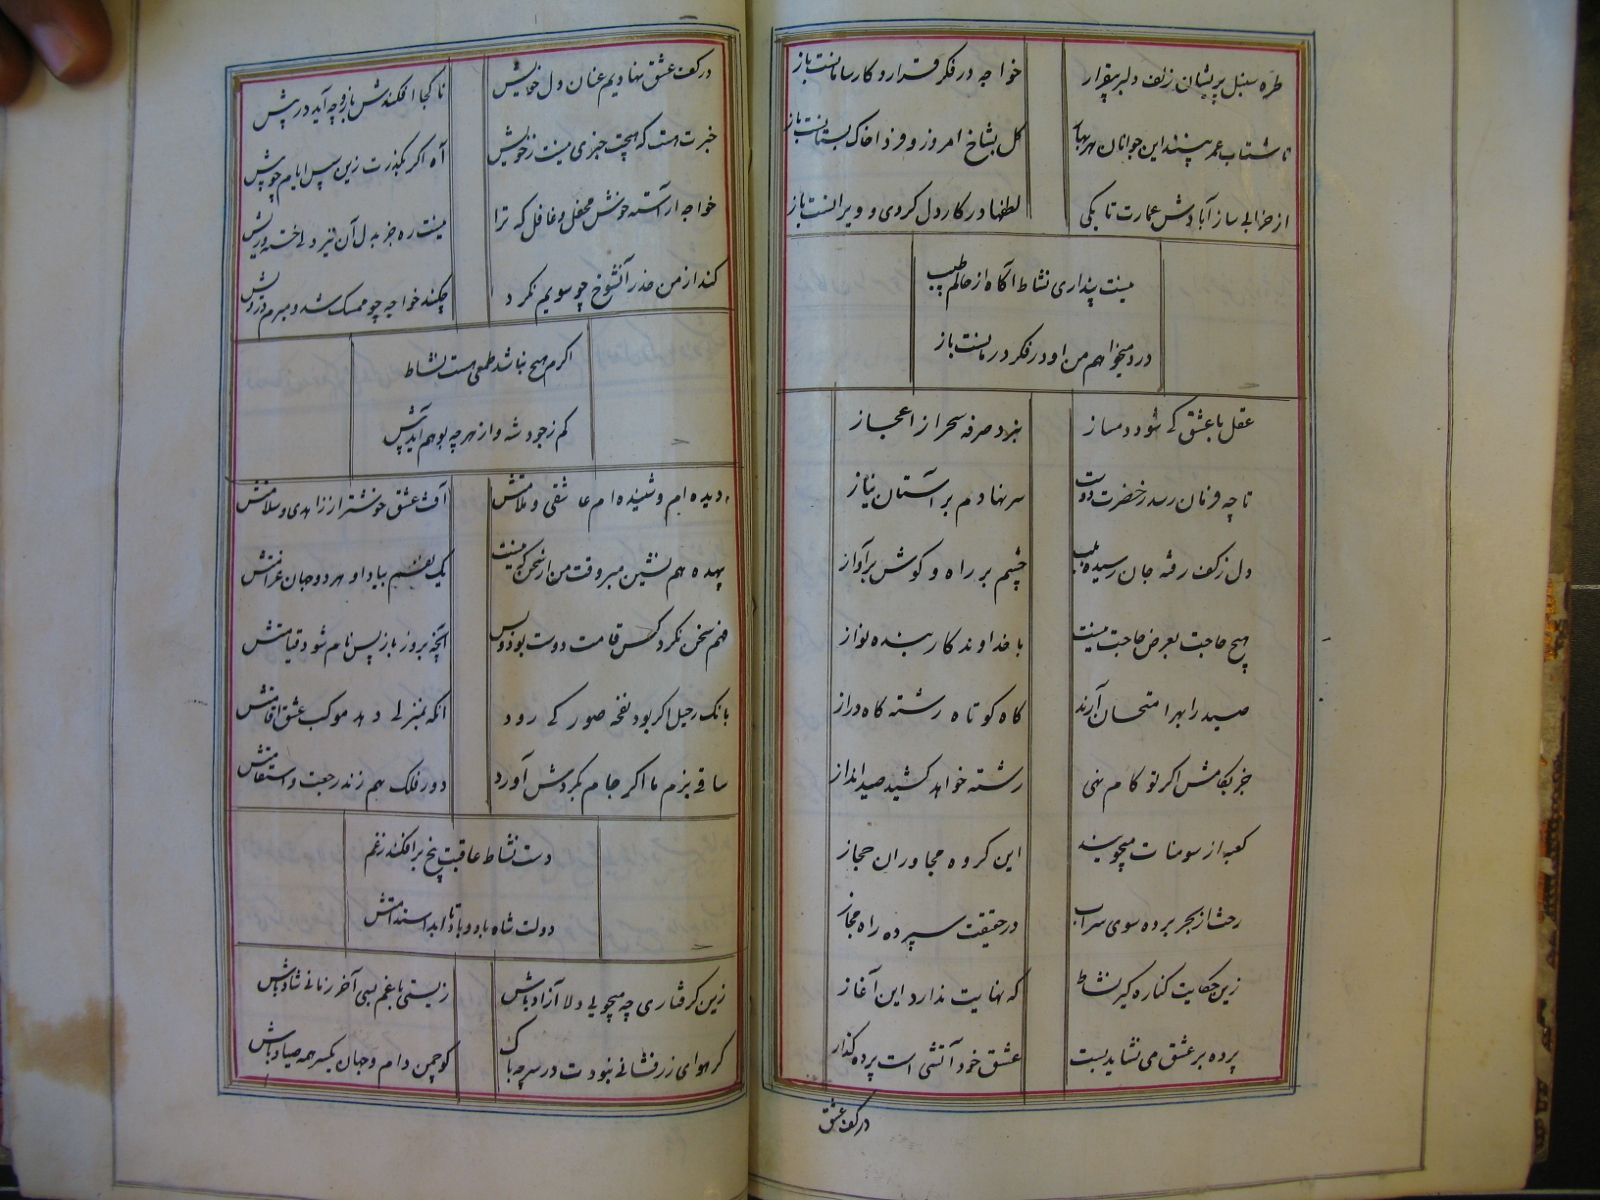 طره سنبل پریشان زلف دلبر بیقرار خواجه در فکر قرار و کار سامانست باز
تا شتاب عمر بینند این جوانان هر بهار گل بشاخ امروز و فردا خاک بستانست باز
از خرابی ساز آبادش عمارت تا بکی لطفها در کار دل کردی و ویرانست باز
نیست پنداری نشاط آگاه از حالم طبیب
درد میخواهم من او در فکر درمانست باز
عقل با عشق کی شود دمساز نبرد صرفه سحر از اعجاز
تا چه فرمان رسد ز حضرت دوست سر نهادم بر آستان نیاز
دل ز کف رفته جان رسیده بلب چشم بر راه و کوش بر آواز
هیچ حاجت بعرض حاجت نیست با خداوندکار بنده نواز
صید را بهر امتحان آرند کاه کوتاه رشته کاه دراز
جز بکامش اکر تو کام نهی رشته خواهد کشید صید انداز
کعبه از سومنات میجویند این کروه مجاوران حجاز
رخت از بحر برده سوی سراب در حقیقت سپرده راه مجاز
زین حکایت کناره کیر نشاط که نهایت ندارد این آغاز
پرده بر عشق می نشاید بست عشق خود آتشی است پرده کداز
در کف عشق
در کف عشق نهادیم عنان دل خویش تا کجا افکندش باز و چه آید در پیش
خبرت هست که هیچت خبری نیست ز خویش آه اکر بکذرت زین پس ایام چو پیش
خواجه آراسته خوش محفل و غافل که ترا نیست ره جز بدل آن نیز دلی خسته و ریش
کند از من حذر آنشوخ چو سویم نکرد چکند خواجه چو ممسک شد و مبرم درویش
اکرم هیچ نباشد طمعی هست نشاط
کم ز جود شه و از هر چه بوهم آید بیش
دیده ام و شنیده ام عاشقی و ملامتش آفت عشق خوشتر از زاهدی و سلامتش
بهده هم نشین مبر وقت من از سخن که نیست یک نفسم بیاد او هر دو جهان غرامتش
ختم سخن نکرد کس قامت دوست بود و بس آنچه بروز باز پس نام شود قیامتش
بانک رحیل اکر بود نفخه صور کی رود آنکه بمنزلی دهد موکب عشق اقامتش
ساقی بزم ما اکر جام بکردش آورد دور فلک بهم زند رجعت و استقامتش
دست نشاط عاقبت بیخ بر افکند ز غم
دولت شاه باد و با تا باد استدامتش
زین کرفتاری چه میجویی دلا آزاد باش زیستی با غم بسی آخر زمانی شاد باش
کر هوای زرفشانی نبودت در سر چه باک کو چمن دام و جهان یکسر همه صیاد باش